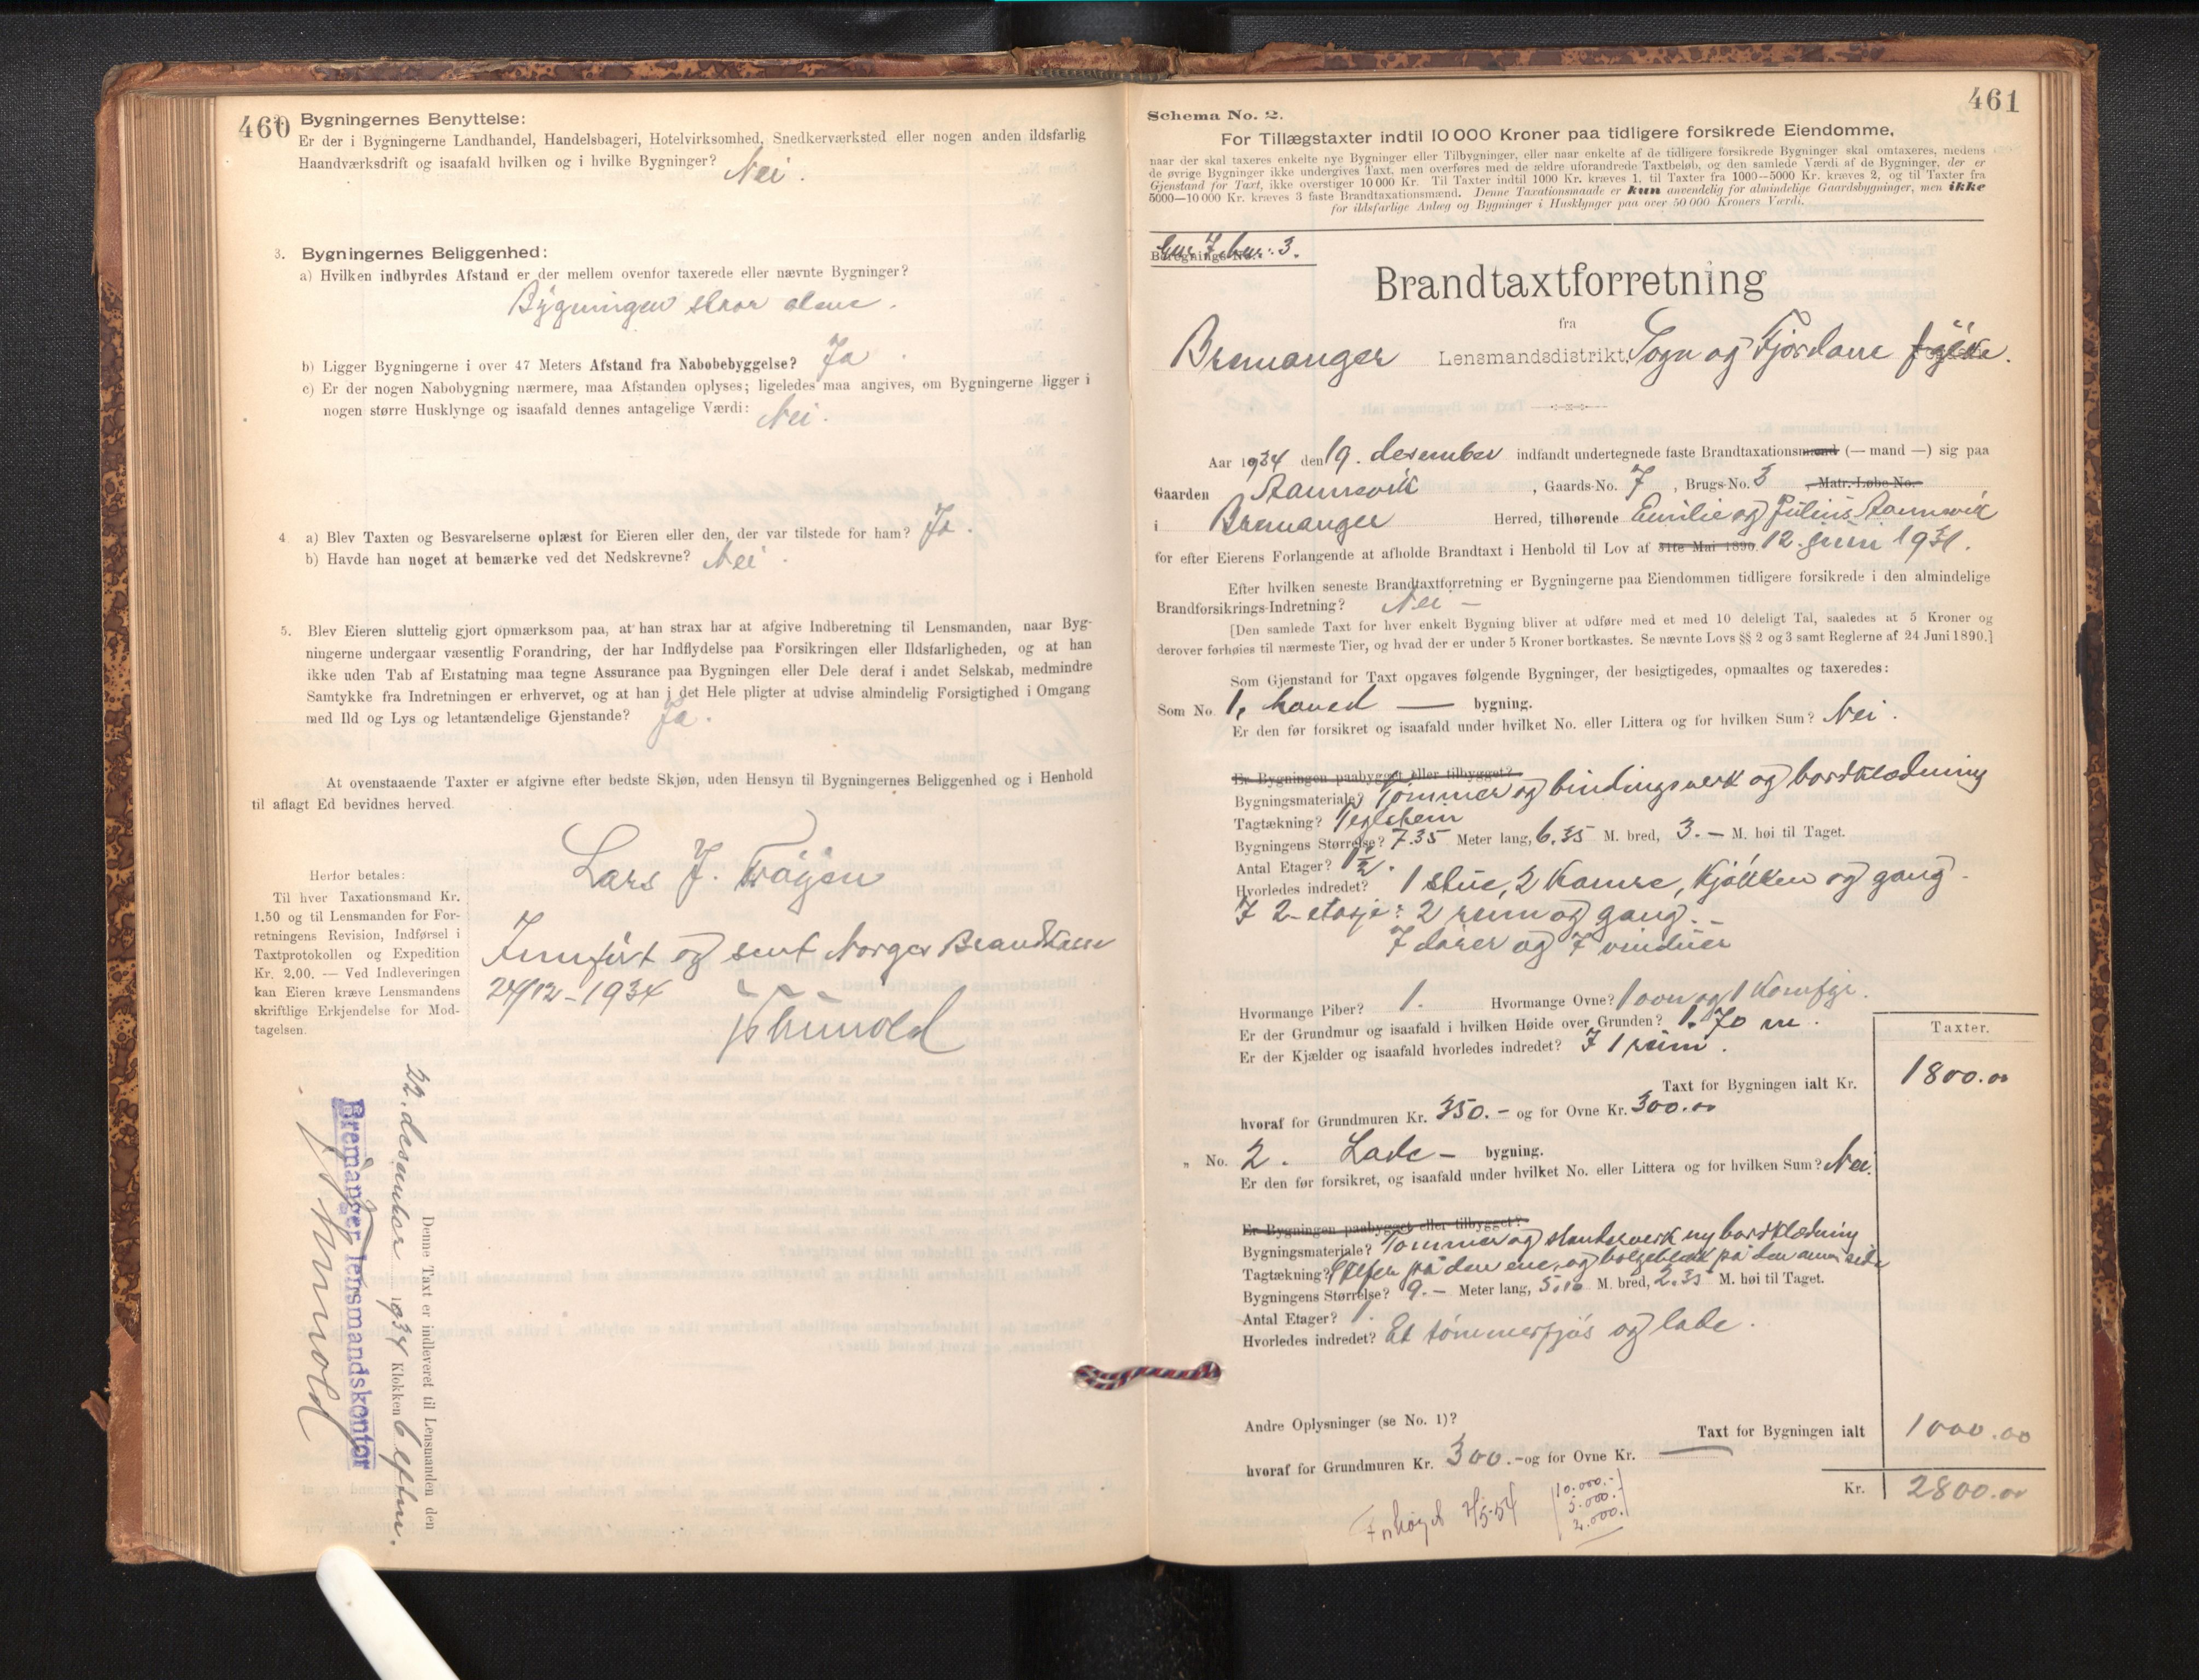 460
Bygningernes Benyttelse:
Er der i Bygningerne Landhandel, Handelsbageri, Hotelvirksomhed, Snedkerværksted eller nogen anden ildsfarlig
Haandværksdrift og isaafald hvilken og i hvilke Bygninger? Nei.
3. Bygningernes Beliggenhed:
a) Hvilken indbyrdes Afstand er der mellem ovenfor taxerede eller nævnte Bygninger?
Bygningen staar alene.
b) Ligger Bygningerne i over 47 Meters Afstand fra Nabobebyggelse? Ja
c) Er der nogen Nabobygning nærmere, maa Afstanden oplyses; ligeledes maa angives, om Bygningerne ligger i
nogen større Husklynge og isaafald dennes antagelige Værdi: Nei.
4. a) Blev Taxten og Besvarelserne oplæst for Eieren eller den, der var tilstede for ham? Ja.
b) Havde han noget at bemærke ved det Nedskrevne? Nei.
5. Blev Eieren sluttelig gjort opmærksom paa, at han strax har at afgive Indberetning til Lensmanden, naar Byg-
ningerne undergaar væsentlig Forandring, der har Indflydelse paa Forsikringen eller Ildsfarligheden, og at han
ikke uden Tab af Erstatning maa tegne Assurance paa Bygningen eller Dele deraf i andet Selskab, medmindre
Samtykke fra Indretningen er erhvervet, og at han i det Hele pligter at udvise almindelig Forsigtighed i Omgang
med Ild og Lys og letantændelige Gjenstande? Ja.
At ovenstaaende Taxter er afgivne efter bedste Skjøn, uden Hensyn til Bygningernes Beliggenhed og i Henhold
til aflagt Ed bevidnes herved
Lars J.
Herfor betales:
Til hver Taxationsmand Kr.
1.50 og til Lensmanden for For-
retningens Revision, Indførsel i
Taxtprotokollen og Expedition
Kr. 2.00. — Ved Indleveringen
kan Eieren kræve Lensmandens
skriftlige Erkjendelse for Mod-
tagelsen.
Innført og sent Norges Brandkasse
24/12-1934
Denne Taxt er indleveret til Lensmanden den
22. desember 1934 Klokken 6 eftm.
Bremanger lensmandskontor
461
Schema No. 2.
For Tillægstaxter indtil 10 000 Kroner paa tidligere forsikrede Eiendomme,
naar der skal taxeres enkelte nye Bygninger eller Tilbygninger, eller naar enkelte af de tidligere forsikrede Bygninger skal omtaxeres, medens
de øvrige Bygninger ikke undergives Taxt, men overføres med de ældre uforandrede Taxtbeløb, og den samlede Værdi af de Bygninger, der er
Gjenstand for Taxt, ikke overstiger 10 000 Kr. Til Taxter indtil 1000 Kr. kræves 1, til Taxter fra 1000—5000 Kr. kræves 2, og til Taxter fra
5000—10 000 Kr. kræves 3 faste Brandtaxationsmænd. Denne Taxationsmaade er kun anvendelig for almindelige Gaardsbygninger, men ikke
for ildsfarlige Anlæg og Bygninger i Husklynger paa over 50 000 Kroners Værdi.
Gnr. 7 bnr. 3.
Brandtaxtforretning
fra
Bremanger Lensmandsdistrikt, Sogn og Fjordane fylke.
Aar 1934 den 19. desember indfandt undertegnede faste Brandtaxationsmænd (— mand —) sig paa
Gaarden , Gaards-No. 7, Brugs-No. 3, Matr.-Løbe-No.
i Bremanger Herred, tilhørende Emilie og Julius
for efter Eierens Forlangende at afholde Brandtaxt i Henhold til Lov af 31te Mai 1890. 12. juni 1931.
Efter hvilken seneste Brandtaxtforretning er Bygningerne paa Eiendommen tidligere forsikrede i den almindelige
Brandforsikrings-Indretning? Nei –
[Den samlede Taxt for hver enkelt Bygning bliver at udføre med et med 10 deleligt Tal, saaledes at 5 Kroner og
derover forhøies til nærmeste Tier, og hvad der er under 5 Kroner bortkastes. Se nævnte Lovs §§ 2 og 3 samt Reglerne af 24 Juni 1890.]
Som Gjenstand for Taxt opgaves følgende Bygninger, der besigtigedes, opmaaltes og taxeredes:
Som No. 1, Hoved — bygning.
Er den før forsikret og isaafald under hvilket No. eller Littera og for hvilken Sum? Nei.
Er Bygningen paabygget eller tilbygget?
Bygningsmateriale? Tømmer og bindingsverk og bordklædning
Tagtækning? Teglstein
Bygningens Størrelse? 7.35 Meter lang, 6.35 M. bred, 3.– M. høi til Taget.
Antal Etager? 1½.
Hvorledes indredet? 1 stue, 2 kamre, kjøkken og gang.
I 2-etasje: 2 rum og gang. –
7 dører og 7 vinduer
Hvormange Piber? 1. Hvormange Ovne? 1 ovn og 1 komfyr.
Er der Grundmur og isaafald i hvilken Høide over Grunden? 1.70 m.
Er der Kjælder og isaafald hvorledes indredet? I 1 rum.
Taxter.
Taxt for Bygningen ialt Kr. 1800.00
hvoraf for Grundmuren Kr. 350.– og for Ovne Kr. 300.00
„ No. 2. Lade – bygning.
Er den før forsikret, og isaafald under hvilket No. eller Littera og for hvilken Sum? Nei.
Er Bygningen paabygget eller tilbygget?
Bygningsmateriale? Tømmer og standerverk ny bordklædning
Tagtækning? på den ene, og bølgeblekk på den annen side
Bygningens Størrelse? 9.– Meter lang, 5,10 M. bred, 2.35 M. høi til Taget.
Antal Etager? 1.
Hvorledes indredet? Et tømmerfjøs og lade.
Andre Oplysninger (se No. 1)?
Taxt for Bygningen ialt 1000.00
hvoraf for Grundmuren Kr. 300.– og for Ovne Kr. —
Kr. 2800.00
Forhøyet 4/5-54
10.000.-
5.000.-
2.000.